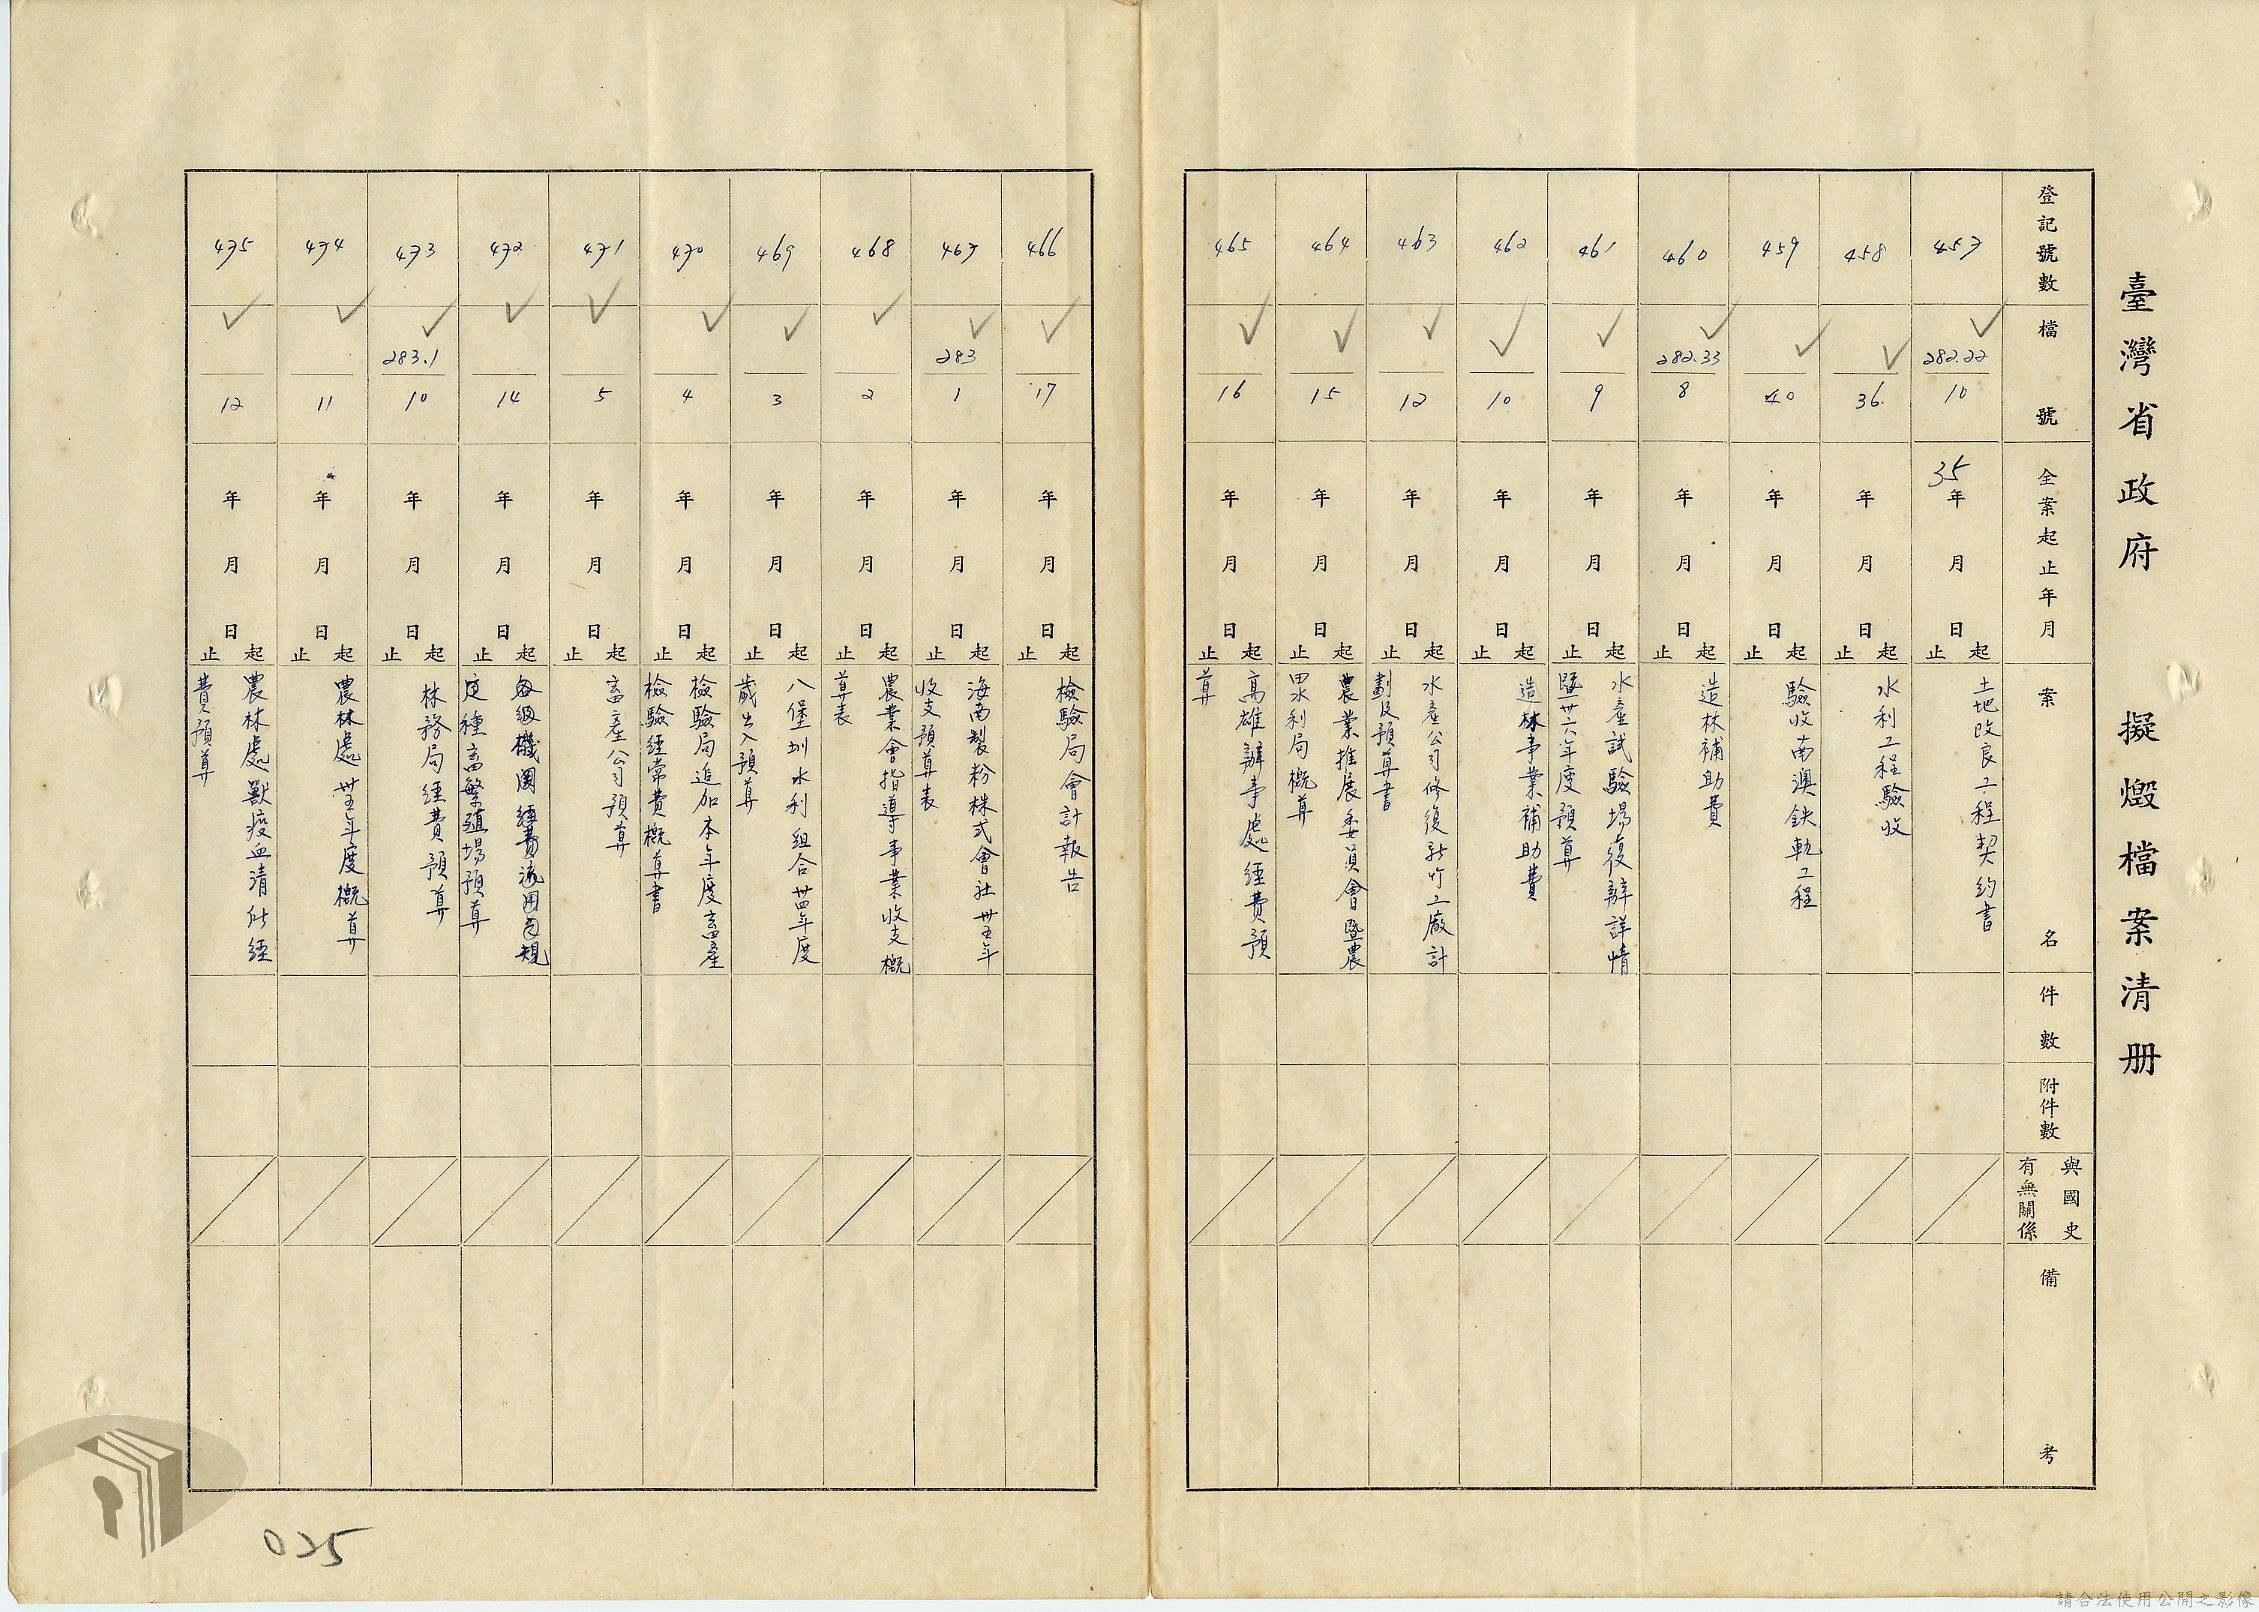 臺灣省政府 擬燬檔案清册
登記號數
檔號
全案起止年月
案名
件數
附件數
與國史
有無關係
備考
457
282.22
10
35年月日起止
土地改良工程契約書
458
36.
年月日起止
水利工程驗收
459
40
年月日起止
驗收南澳鉄軌工程
460
282.33
8
年月日起止
造林補助費
461
9
年月日起止
水產試驗場復辦詳情
暨卅六年度預算
462
10
年月日起止
造林事業補助費
463
12
年月日起止
水產公司修復新竹工廠計
劃及預算書
464
15
年月日起止
農業推展委員會暨農
田水利局概算
465
16
年月日起止
高雄辦事處經費預
算
466
17
年月日起止
檢驗局會計報告
467
283
1
年月日起止
海南製粉株式會社卅五年
收支預算表
468
2
年月日起止
農業會指導事業收支概
算表
469
3
年月日起止
八堡圳水利組合卅四年度
歲出入預算
470
4
年月日起止
檢驗局追加本年度畜產
檢驗經常費概算書
471
5
年月日起止
畜產公司預算
472
14
年月日起止
各級機關經費流用另規
定種畜繁殖場預算
473
283.1
10
年月日起止
林務局經費預算
474
11
年月日起止
農林處卅五年度概算
475
12
年月日起止
農林處獸疫血清所經
費預算
025
請合法使用公開之影像